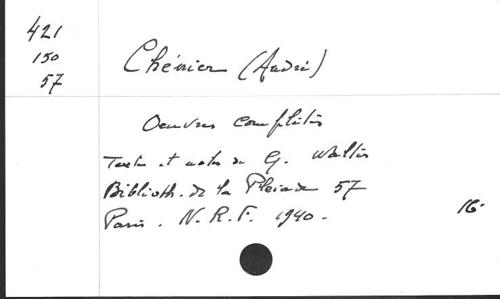 421
150
57
Chénier (André)
Oeuvres complètes
Texte et notes de G. Walter
Biblioth. de la Pleiade 57
Paris. N.R.F. 1940.
16